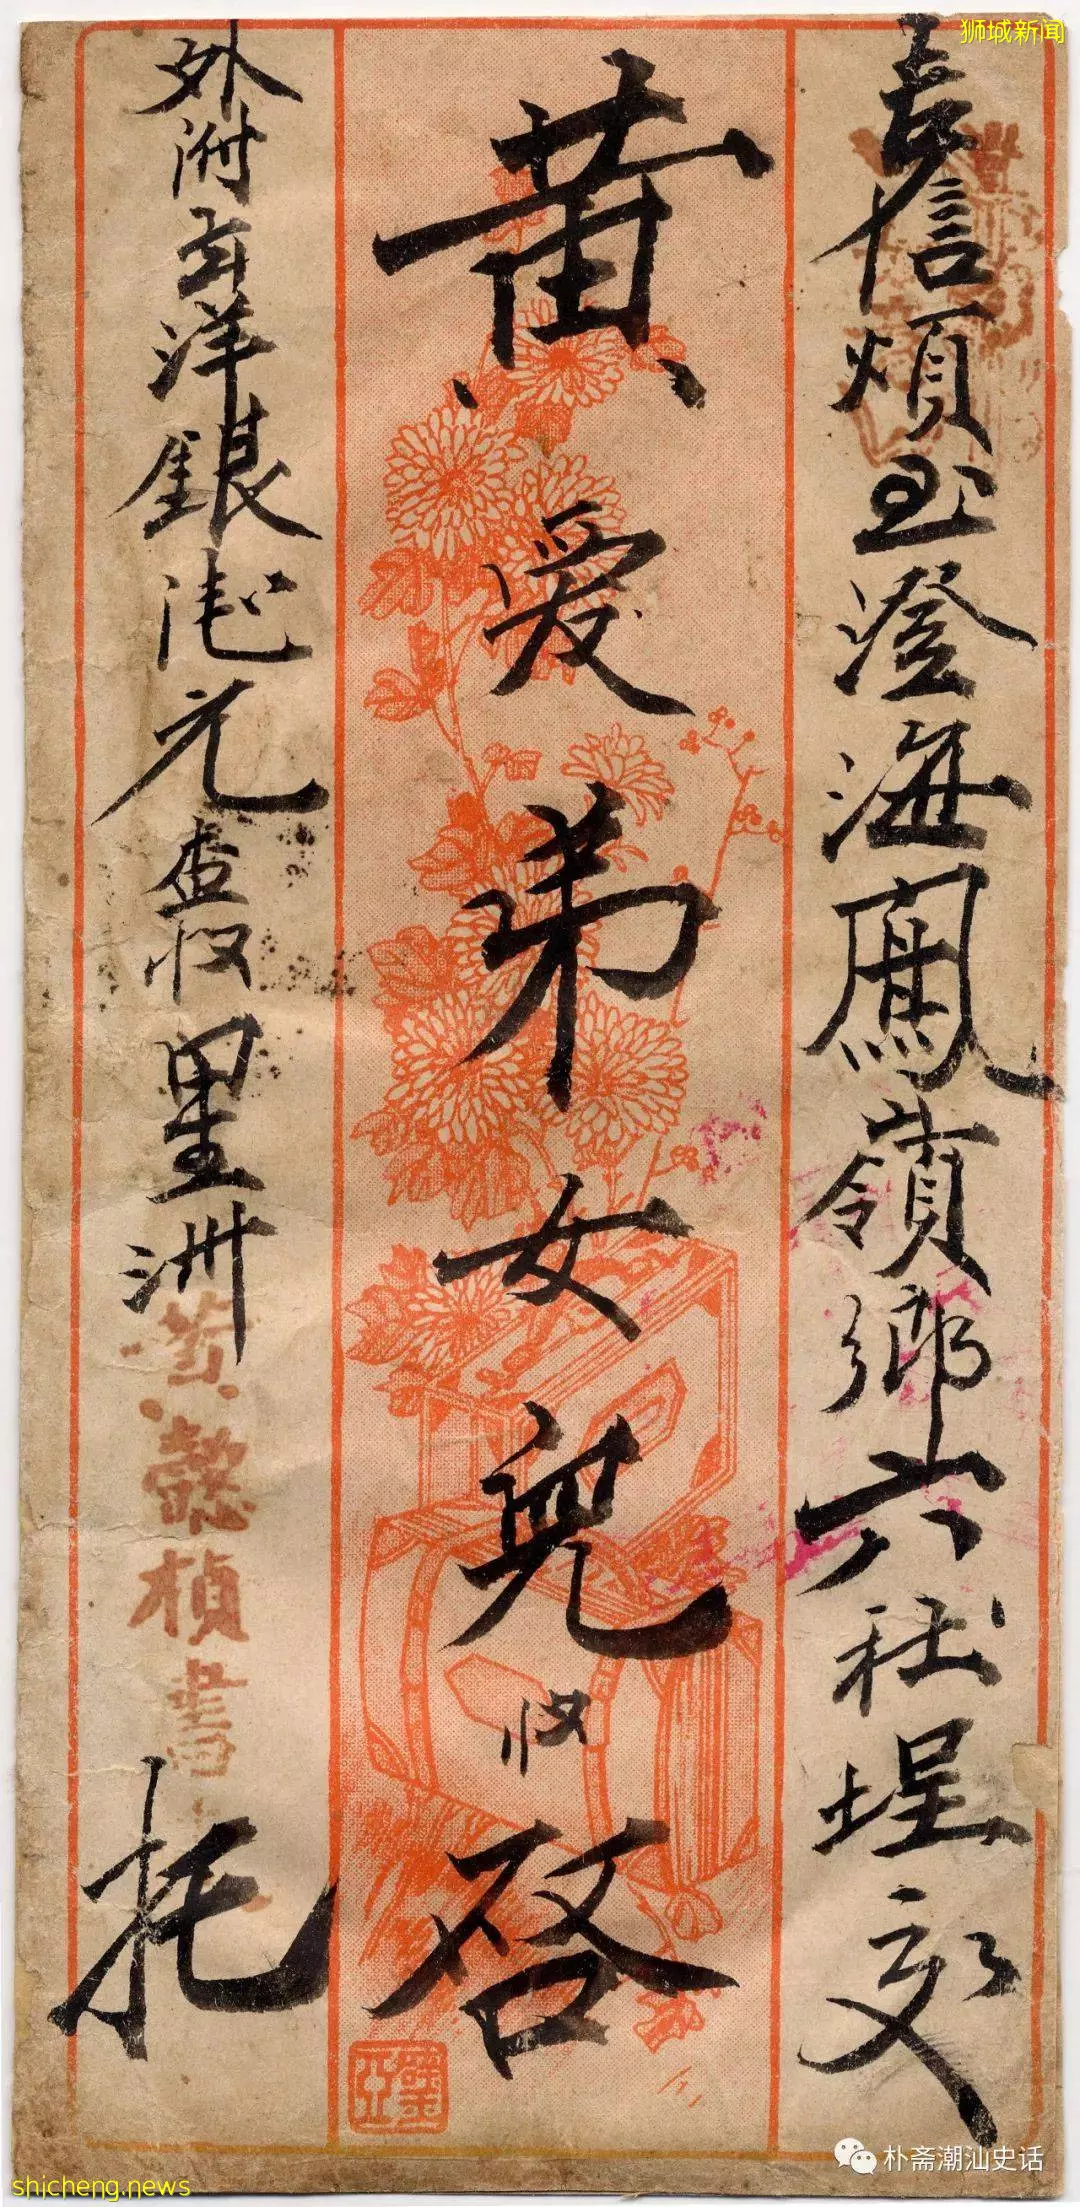 狮城新闻
吉信煩至澄海鳳嶺鄉六社埕交
黃愛弟女兒收啓
外附去洋銀元查收星洲黃懿楨書托
朴斋潮汕史话
shicheng.news